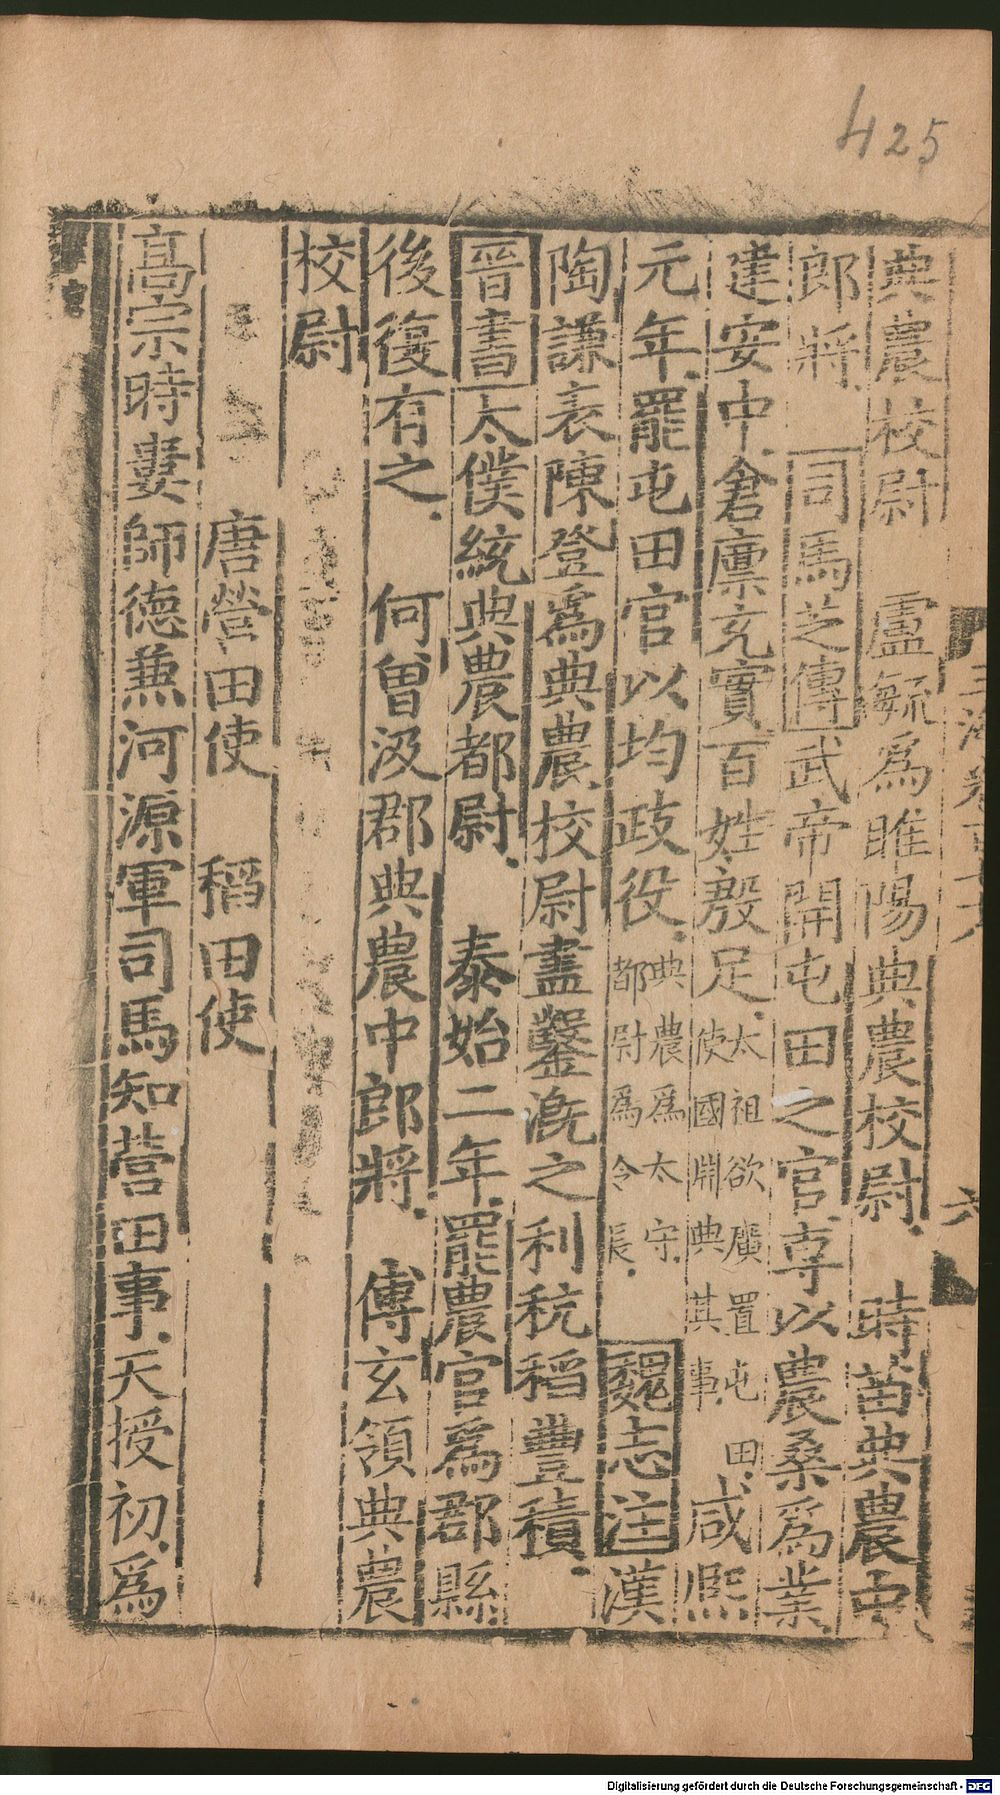 425
典農校尉 盧毓爲睢陽典農校尉 時苗典農中
郎將 司馬芝傳武帝開屯田之官專以農桑爲業
建安中倉廪充實百姓殷足太祖欲廣置屯田使國淵典其事咸熙
元年罷屯田官以均政役典農爲太守都尉爲令長魏志注漢
陶謙表陳登爲典農校尉盡鑿漑之利秔稻豐積
晉書太僕統典農都尉 泰始二年罷農官爲郡縣
後復有之 何曾汲郡典農中郎將 傅玄領典農
校尉
唐營田使 稻田使
高宗時婁師德兼河源軍司馬知營田事天授初爲
六
Digitalisierung gefördert durch die Deutsche Forschungsgemeinschaft - DFG